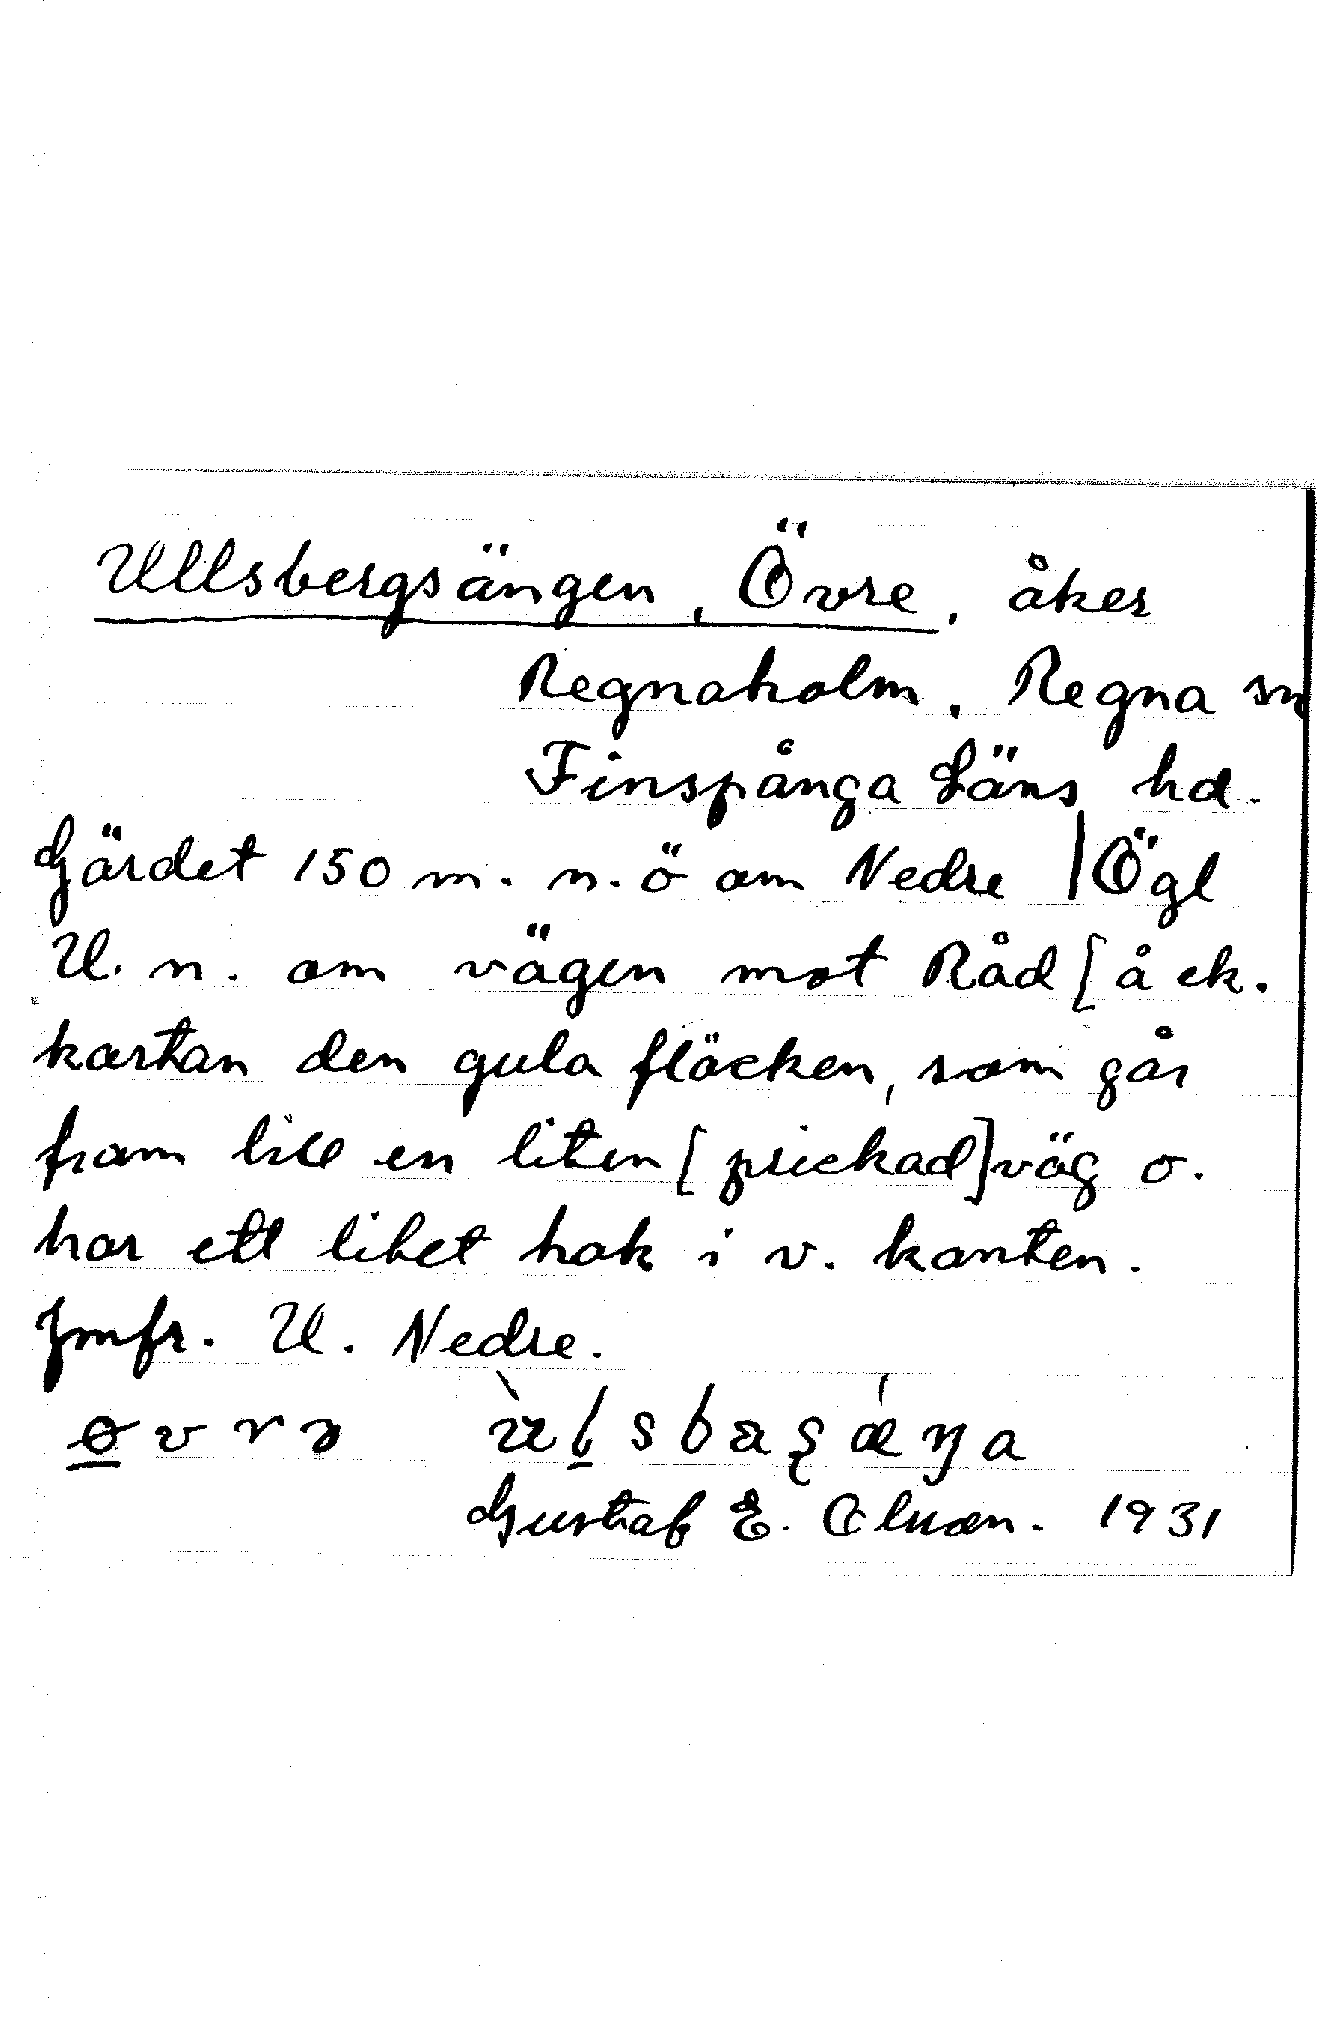 Ullsbergsängen, Övre, åker
Regnaholm, Regna sn
Finspånga Läns hd.
Gärdet 150 m. n. ö om Nedre | Ögl
U. n. om vägen mot Råd [å ek.
kartan den gula fläcken, som går
fram till en liten [prickad] väg o.
har ett litet hak i v. kanten.
Jmfr. U. Nedre.
Gustaf E. 1931